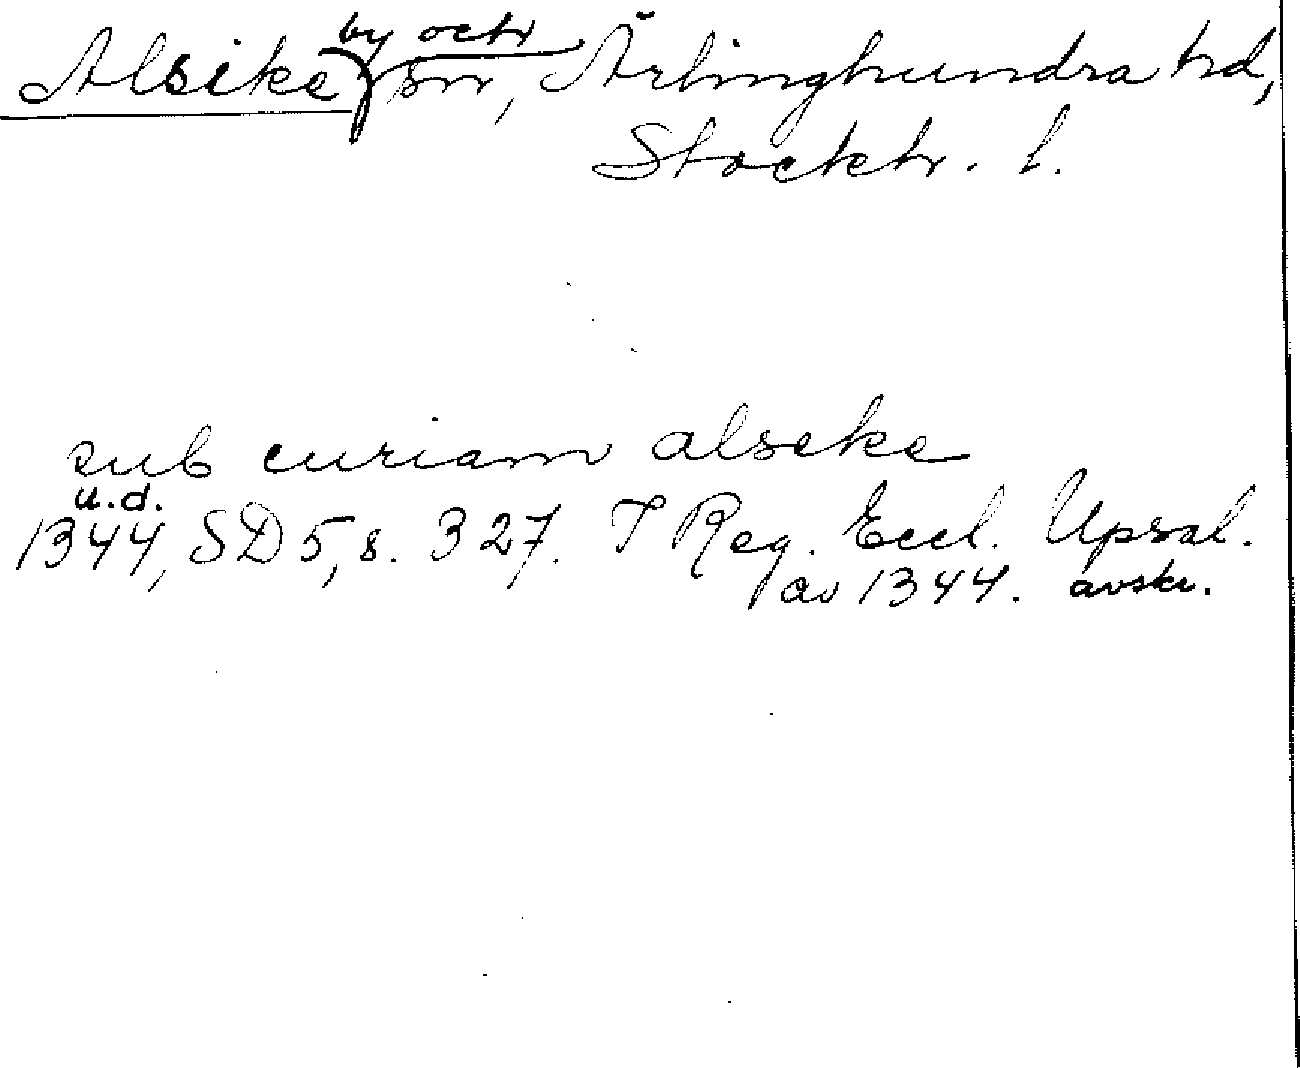 Alsike by och sn, Ärlinghundra hd,
Stockh. l.
sub curiam alseke
u.d.
1344, SD 5, s. 327. I Reg. Eccl. Upsal.
av 1344. avskr.